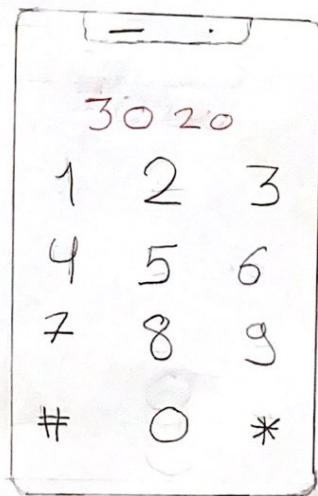 3020
1 2 3
4 5 6
7 8 9
# 0 *